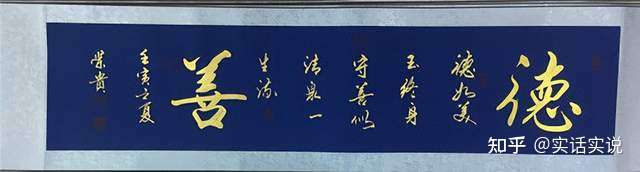 德
德如美
玉终身
守善似
清泉一
生流
善
壬寅之夏
贵
知乎 @实话实说